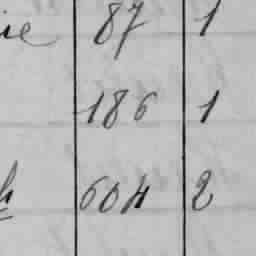 ie 87 1
186 1
h 604 2